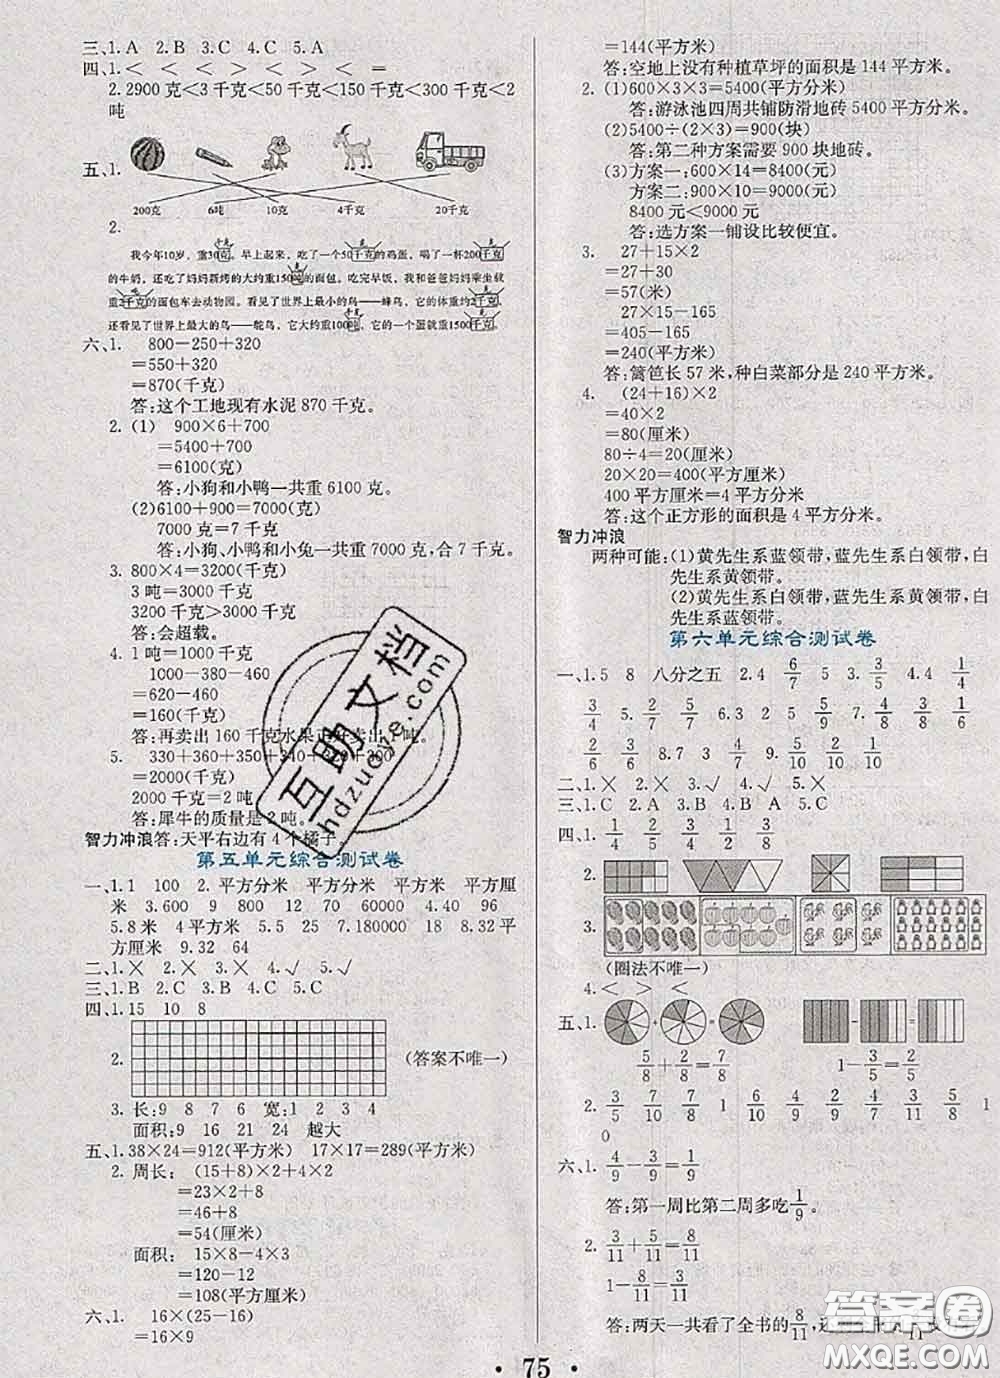 三、1. A 2. B 3. C 4. C 5. A
四、1. < < < > > > =
2. 2900 克<3 千克<50 千克<150 千克<300 千克<2
吨
五、1.
200克 6吨 10克 4千克 20千克
2.
我今年10岁，重30千克。早上起来，吃了一个50千克的鸡蛋，喝了一杯200千克
的牛奶，还吃了妈妈新烤的大约重100吨的面包。吃完早饭，我和爸爸妈妈乘坐载
重2千克的面包车去动物园。看见了世界上最小的鸟——蜂鸟，它的体重约2千克，
还看见了世界上最大的鸟——鸵鸟，它大约重100吨，它的一个蛋就重1500千克。
六、1. 800－250＋320
＝550＋320
＝870(千克)
答：这个工地现有水泥 870 千克。
2. (1) 900×6＋700
＝5400＋700
＝6100(克)
答：小狗和小鸭一共重 6100 克。
(2)6100＋900＝7000(克)
7000 克＝7 千克
答：小狗、小鸭和小兔一共重 7000 克，合 7 千克。
3. 800×4＝3200(千克)
3 吨＝3000 千克
3200 千克>3000 千克
答：会超载。
4. 1 吨＝1000 千克
1000－380－460
＝620－460
＝160(千克)
答：再卖出 160 千克水果正好卖出 1 吨。
5. 330＋360＋350＋340＋320＋300
＝2000(千克)
2000 千克＝2 吨
答：犀牛的质量是 2 吨。
智力冲浪答：天平右边有 4 个橘子。
第五单元综合测试卷
一、1. 1 100 2. 平方分米 平方米 平方分米 平方厘
米 3. 600 9 800 12 70 60000 4. 40 96
5. 8 米 4 平方米 5. 5 25 7. 180000 18 8. 32 平
方厘米 9. 32 64
二、1. × 2. × 3. × 4. √ 5. √
三、1. B 2. C 3. B 4. C 5. C
四、1. 15 10 8
2. (答案不唯一)
3. 长：9 8 7 6 宽：1 2 3 4
面积：9 16 21 24 越大
五、1. 38×24＝912(平方米) 17×17＝289(平方米)
2. 周长： (15＋8)×2＋4×2
＝23×2＋8
＝46＋8
＝54(厘米)
面积： 15×8－4×3
＝120－12
＝108(平方厘米)
六、1. 16×(25－16)
＝16×9
＝144(平方米)
答：空地上没有种植草坪的面积是 144 平方米。
2. (1)600×3×3＝5400(平方分米)
答：游泳池四周共铺防滑地砖 5400 平方分米。
(2)5400÷(2×3)＝900(块)
答：第二种方案需要 900 块地砖。
(3)方案一：600×14＝8400(元)
方案二：900×10＝9000(元)
8400 元<9000 元
答：选方案一铺设比较便宜。
3. 27＋15×2
＝27＋30
＝57(米)
27×15－165
＝405－165
＝240(平方米)
答：篱笆长 57 米，种白菜部分是 240 平方米。
4. (24＋16)×2
＝40×2
＝80(厘米)
80÷4＝20(厘米)
20×20＝400(平方厘米)
400 平方厘米＝4 平方分米
答：这个正方形的面积是 4 平方分米。
智力冲浪
两种可能：(1)黄先生系蓝领带，蓝先生系白领带，白
先生系黄领带。
(2)黄先生系白领带，蓝先生系黄领带，白
先生系蓝领带。
第六单元综合测试卷
一、1. 5 8 八分之五 2. 4 6/7 5 3. 3/5 4. 4 1/4
3/4 5. 2/7 5/7 6. 3 2 5 7. 4/8 3/8 1/6
2/6 3/6 8. 7 3 4 9. 5/10 2/10 2/8
二、1. × 2. × 3. √ 4. × 5. √
三、1. C 2. A 3. B 4. B 5. C
四、1. 1/4 2/4 1/2 3/8
2.
3.
(圈法不唯一)
4. < > < >
五、1. ＋ ＝ － ＝
5/8＋2/8＝7/8 1－3/5＝2/5
2. 3/5 7/10 7/8 1 6/10 2/7 4/9 3/11 5/8 1
0
六、1. 4/9－3/9＝1/9
答：第一周比第二周多吃1/9。
2. 3/11＋5/11＝8/11
1－8/11＝3/11
答：两天一共看了全书的8/11，还
75
互助文档
hdzuoye.com
答案圈
MXQE.COM